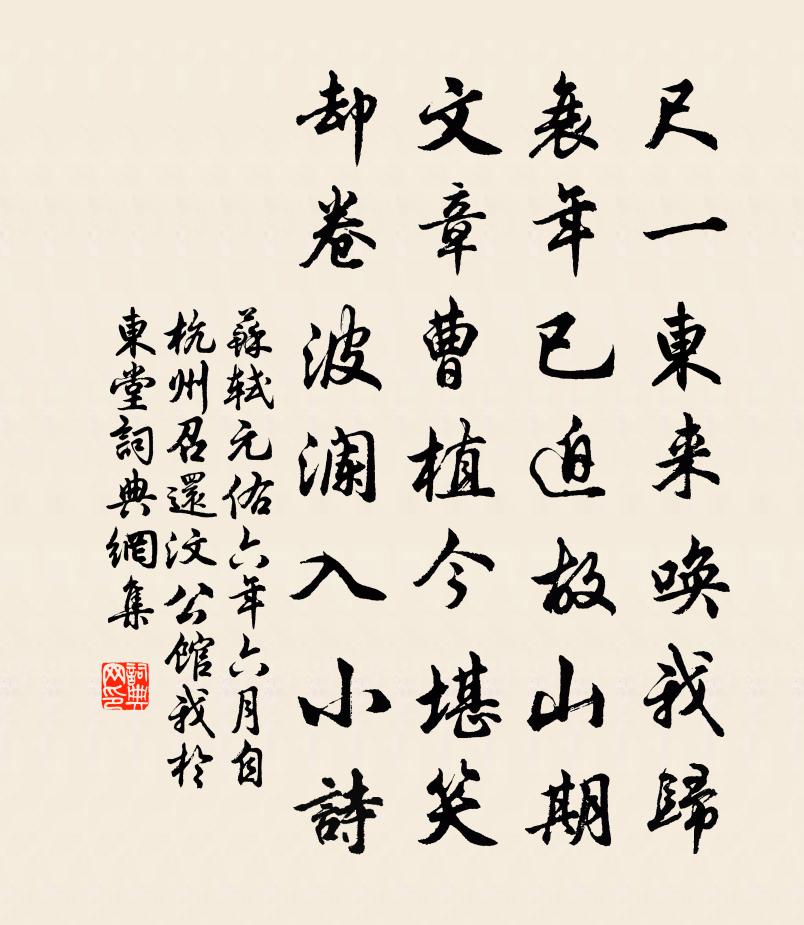 尺一東来喚我歸
衰年已迫故山期
文章曹植今堪笑
却卷波瀾入小詩
蘇軾元佑六年六月自
杭州召還汶公館我於
東堂詞典網集
詞典网印